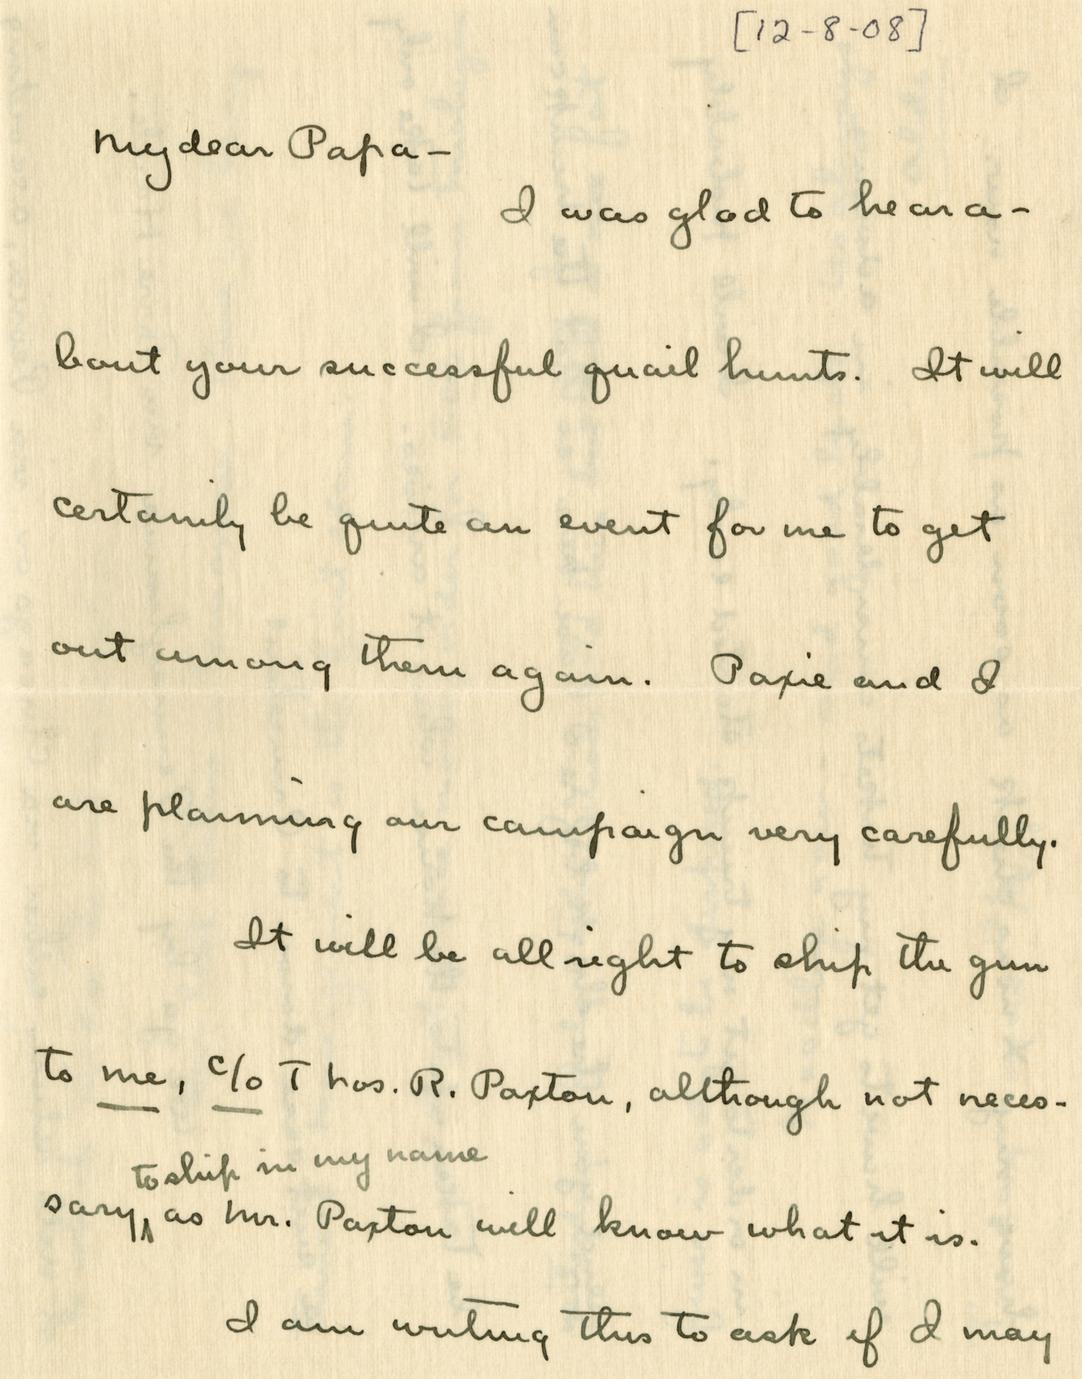 [12-8-08]
My dear Papa—
I was glad to hear a-
bout your successful quail hunts. It will
certainly be quite an event for me to get
out among them again. Paxie and I
are planning our campaign very carefully.
It will be all right to ship the gun
to me, c/o Thos. R. Paxton, although not neces-
to ship in my name
sary,^ as Mr. Paxton will know what it is.
I am writing this to ask if I may